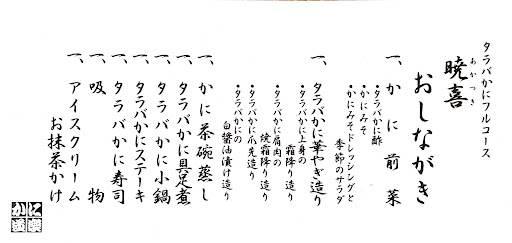 タラバかにフルコース
暁喜
あかつき
おしながき
一、かに前菜
・タラバかに酢
・かにみそ
・かにみそドレッシングと
季節のサラダ
一、タラバかに華やぎ造り
・タラバかに上身の
霜降り造り
・タラバかに肩肉の
焼霜降り造り
・タラバかに爪先造り
・タラバかにの
白醤油漬け造り
一、かに茶碗蒸し
一、タラバかに具足煮
一、タラバかに小鍋
一、タラバかにステーキ
一、タラバかに寿司
一、吸物
一、アイスクリーム
お抹茶かけ